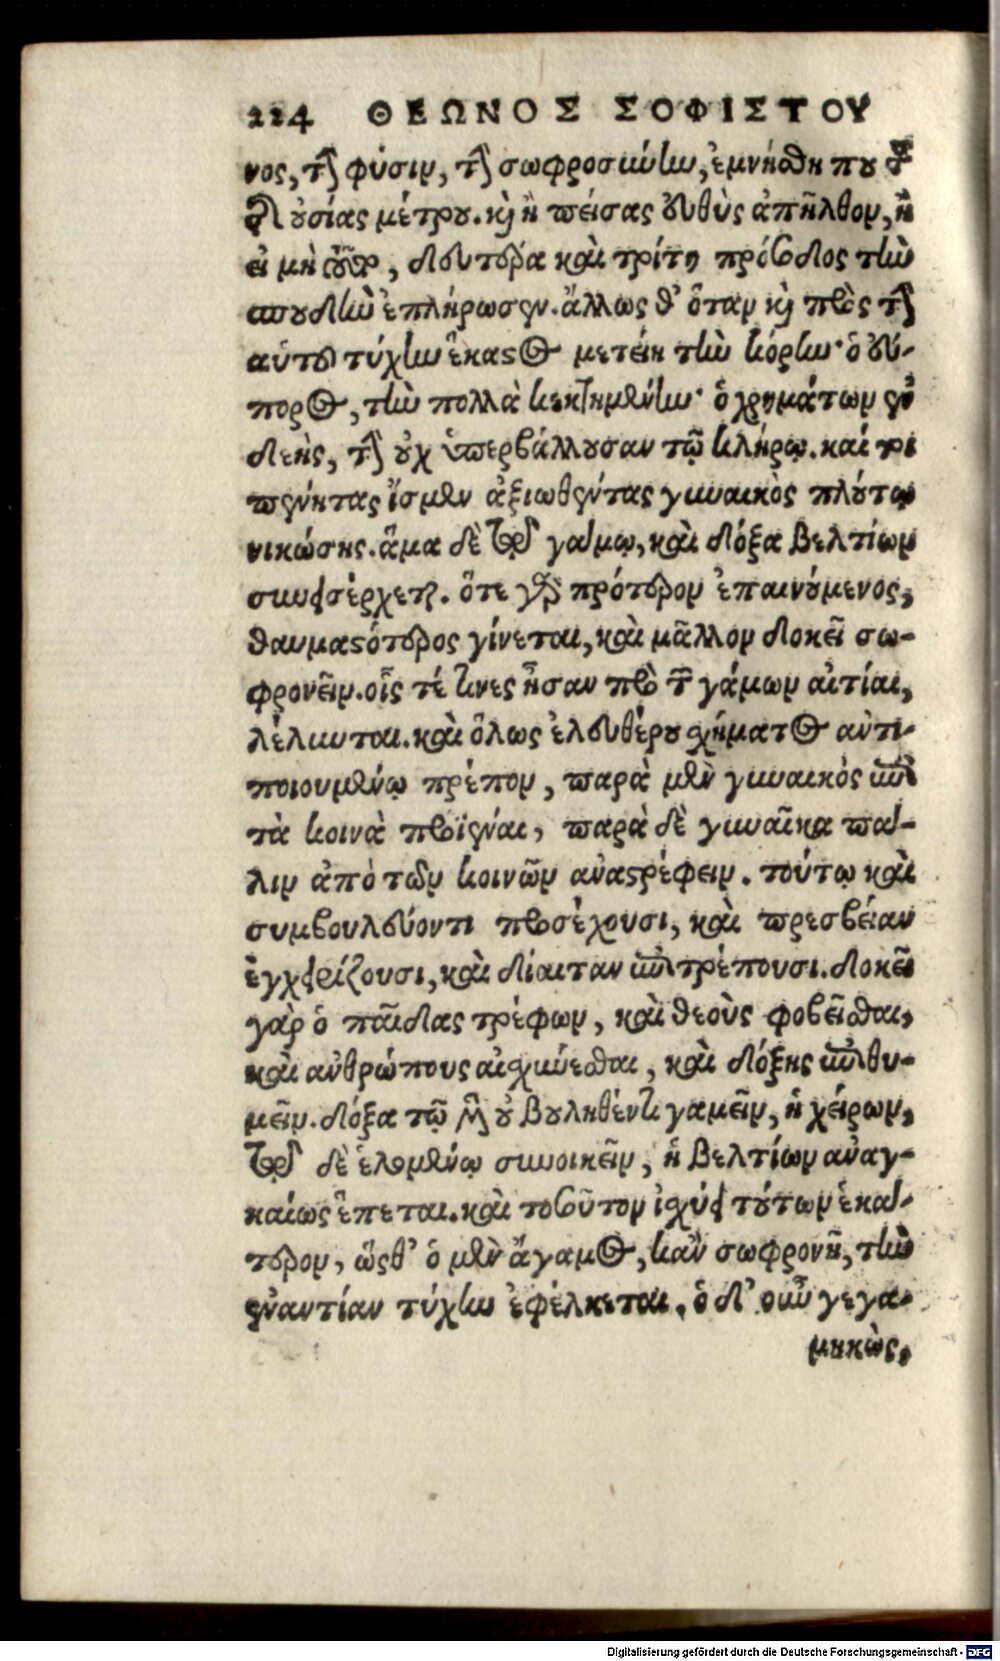 224 ΘΕΩΝΟΣ ΣΟΦΙΣΤΟΥ
νος, τὴν φύσιν, τὴν σωφροσύνην, ἐμνήσθη που τ
οὐσίας μέτρου. καὶ ἢ πείσας εὐθὺς ἀπῆλθον, ἢ
εἰ μὴ οὖν, δευτέρα καὶ τρίτη πρόσοδος τὴν
σπουδὴν ἐπλήρωσεν. ἄλλως θ' ὅταν καὶ πρὸς τὴν
αὑτοῦ τύχην ἕκαστος μετείη τὴν κόρην· ὁ εὔ-
πορος, τὴν πολλὰ κεκτημένην· ὁ χρημάτων ἐν
δεὴς, τὴν οὐχ ὑπερβάλλουσαν τῷ κλήρῳ. καί τοι
πένητας ἴσμεν ἀξιωθέντας γυναικὸς πλούτῳ
νικώσης. ἅμα δὲ τῷ γάμῳ, καὶ δόξα βελτίων
συνεισέρχεται. ὅτε γὰρ πρότερον ἐπαινούμενος,
θαυμαστότερος γίνεται, καὶ μᾶλλον δοκεῖ σω-
φρονεῖν. οἷς τέ τινες ἦσαν πρὸ τῶν γάμων αἰτίαι,
λέλυνται. καὶ ὅλως ἐλευθέρου σχήματος ἀντι-
ποιουμένῳ πρέπον, παρὰ μὲν γυναικὸς ἐπὶ
τὰ κοινὰ προϊέναι, παρὰ δὲ γυναῖκα πά-
λιν ἀπὸ τῶν κοινῶν ἀναστρέφειν. τούτῳ καὶ
συμβουλεύοντι προσέχουσι, καὶ πρεσβείαν
ἐγχειρίζουσι, καὶ δίαιταν ἐπιτρέπουσι. δοκεῖ
γὰρ ὁ παῖδας τρέφων, καὶ θεοὺς φοβεῖσθαι,
καὶ ἀνθρώπους αἰσχύνεσθαι, καὶ δόξης ἐπιθυ-
μεῖν. δόξα τῷ μὴ οὐ βουληθέντι γαμεῖν, ἡ χείρων,
τῷ δὲ ἑλομένῳ συνοικεῖν, ἡ βελτίων ἀναγ-
καίως ἕπεται. καὶ τοσοῦτον ἰσχύει τούτων ἑκά-
τερον, ὥσθ' ὁ μὲν ἄγαμος, κἂν σωφρονῇ, τὴν
ἐναντίαν τύχην ἐφέλκεται, ὁ δ' οὖν γεγα-
μηκὼς,
Digitalisierung gefördert durch die Deutsche Forschungsgemeinschaft - DFG